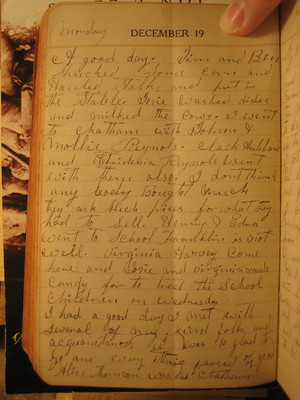 Monday
DECEMBER 19
A good day. Jim and Ben
Shucked some corn and
Hauled Stalks and put in
the Stable. Josie washed dishes
and milked the cows. I went
to Chatham with Robson &
Mollie Reynols. Clack Hubbard
and Reynols went
with them also. I dont think
any body bought much
they ask such prices for what they
had to sell. Henry & Edna
went to School Franklin is not
well. Virginia Harvey Come
here and Josie and Virginia made
Candy for to treat the School
Children on Wednesday
I had a good day I met with
several of my kind folks and
acquaintances, was so glad to
go and every thing passed off good
Alice Thomson was at Chatham